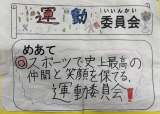 運動委員会
いいんかい
めあて
◎スポーツで史上最高の
仲間と笑顔を保てる、
運動委員会!